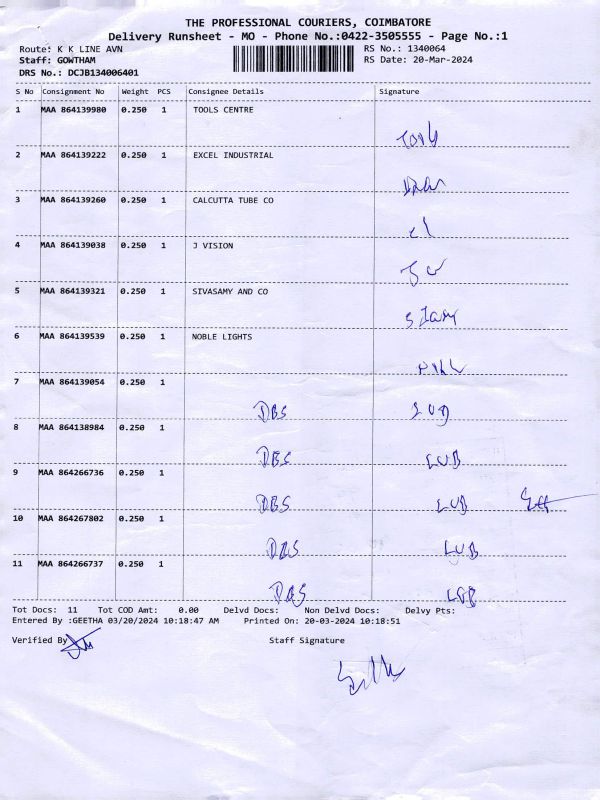 THE PROFESSIONAL COURIERS, COIMBATORE
Delivery Runsheet - MO - Phone No.:0422-3505555 - Page No.:1
Route: K K LINE AVN RS No.: 1340064
Staff: GOWTHAM RS Date: 20-Mar-2024
DRS No.: DCJB134006401
S No Consignment No Weight PCS Consignee Details Signature
1 MAA 864139980 0.250 1 TOOLS CENTRE
2 MAA 864139222 0.250 1 EXCEL INDUSTRIAL
3 MAA 864139260 0.250 1 CALCUTTA TUBE CO
4 MAA 864139038 0.250 1 J VISION
5 MAA 864139321 0.250 1 SIVASAMY AND CO
6 MAA 864139539 0.250 1 NOBLE LIGHTS
7 MAA 864139054 0.250 1
DBS
8 MAA 864138984 0.250 1
DBS LUB
9 MAA 864266736 0.250 1
DBS LUB
10 MAA 864267802 0.250 1
DBS LUB
11 MAA 864266737 0.250 1
DBS LUB
Tot Docs: 11 Tot COD Amt: 0.00 Delvd Docs: Non Delvd Docs: Delvy Pts:
Entered By :GEETHA 03/20/2024 10:18:47 AM Printed On: 20-03-2024 10:18:51
Verified By Staff Signature